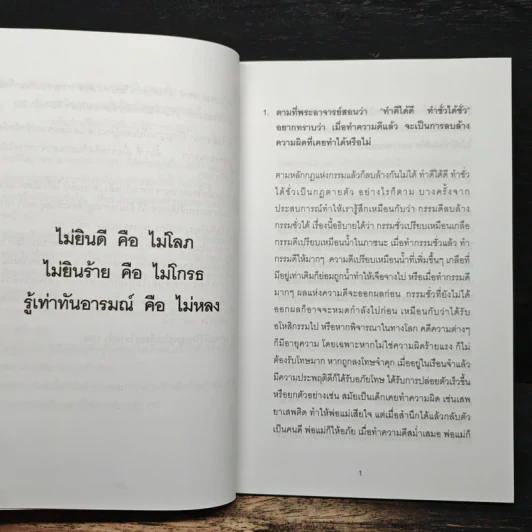 ไม่ยินดี คือ ไม่โลภ
ไม่ยินร้าย คือ ไม่โกรธ
รู้เท่าทันอารมณ์ คือ ไม่หลง
1. ตามที่พระอาจารย์สอนว่า "ทำดีได้ดี ทำชั่วได้ชั่ว"
อยากทราบว่า เมื่อทำความดีแล้ว จะเป็นการลบล้าง
ความผิดที่เคยทำได้หรือไม่
ตามหลักกฎแห่งกรรมแล้วก็ลบล้างกันไม่ได้ ทำดีได้ดี ทำชั่ว
ได้ชั่วเป็นกฎตายตัว อย่างไรก็ตาม บางครั้งจาก
ประสบการณ์ทำให้เรารู้สึกเหมือนกับว่า กรรมดีลบล้าง
กรรมชั่วได้ เรื่องนี้อธิบายได้ว่า กรรมชั่วเปรียบเหมือนเกลือ
กรรมดีเปรียบเหมือนน้ำในภาชนะ เมื่อทำกรรมชั่วแล้ว ทำ
กรรมดีให้มากๆ ความดีเปรียบเหมือนน้ำที่เพิ่มขึ้นๆ เกลือที่
มีอยู่เท่าเดิมก็ย่อมถูกน้ำทำให้เจือจางไป หรือเมื่อทำกรรมดี
มากๆ ผลแห่งความดีจะออกผลก่อน กรรมชั่วที่ยังไม่ได้
ออกผลก็อาจจะหมดกำลังไปก่อน เหมือนกับว่าได้รับ
อโหสิกรรมไป หรือหากพิจารณาในทางโลก คดีความต่างๆ
ก็มีอายุความ โดยเฉพาะหากไม่ใช่ความผิดร้ายแรง ก็ไม่
ต้องรับโทษมาก หากถูกลงโทษจำคุก เมื่ออยู่ในเรือนจำแล้ว
มีความประพฤติดีก็ได้รับอภัยโทษ ได้รับการปล่อยตัวเร็วขึ้น
หรือยกตัวอย่างเช่น สมัยเป็นเด็กเคยทำความผิด เช่นเสพ
ยาเสพติด ทำให้พ่อแม่เสียใจ แต่เมื่อสำนึกได้แล้วกลับตัว
เป็นคนดี พ่อแม่ก็ให้อภัย เมื่อทำความดีสม่ำเสมอ พ่อแม่ก็
1